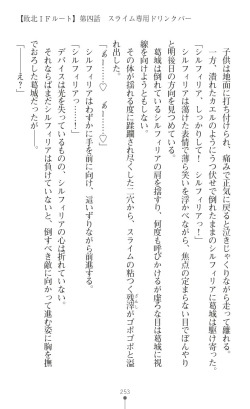 【敗北IFルート】第四話　スライム専用ドリンクバー
　子供は地面に打ち付けられ、痛みで正気に戻ると泣きじゃくりながら走って離れる。
　一方、潰れたカエルのようにうつ伏せで倒れたままのシルフィリアに葛城は駆け寄った。
「シルフィリア、しっかりして！　シルフィリアっ！」
　シルフィリアは蕩けた表情で薄ら笑いを浮かべながら、焦点の定まらない目でぼんやり
と明後日の方向を見つめている。
　葛城は倒れているシルフィリアの肩を揺すり、何度も呼びかけるが虚ろな目は葛城に視
線を向けようともしない。
　その体が揺れる度に蹂躙され尽くした二穴から、スライムの粘つく残滓がゴボゴボと溢
れていた。
「あー……♡　あっ……♡」
　シルフィリアはわずかに手を前に向け、這いずりながら前進する。
「シルフィリアっ……」
　デバイスは光を失っているものの、シルフィリアの心は折れていない。
　それならばまだシルフィリアは負けていないと、倒すべき敵に向かって進む姿に胸を撫
でおろした葛城だったが――。
「――え？」
253